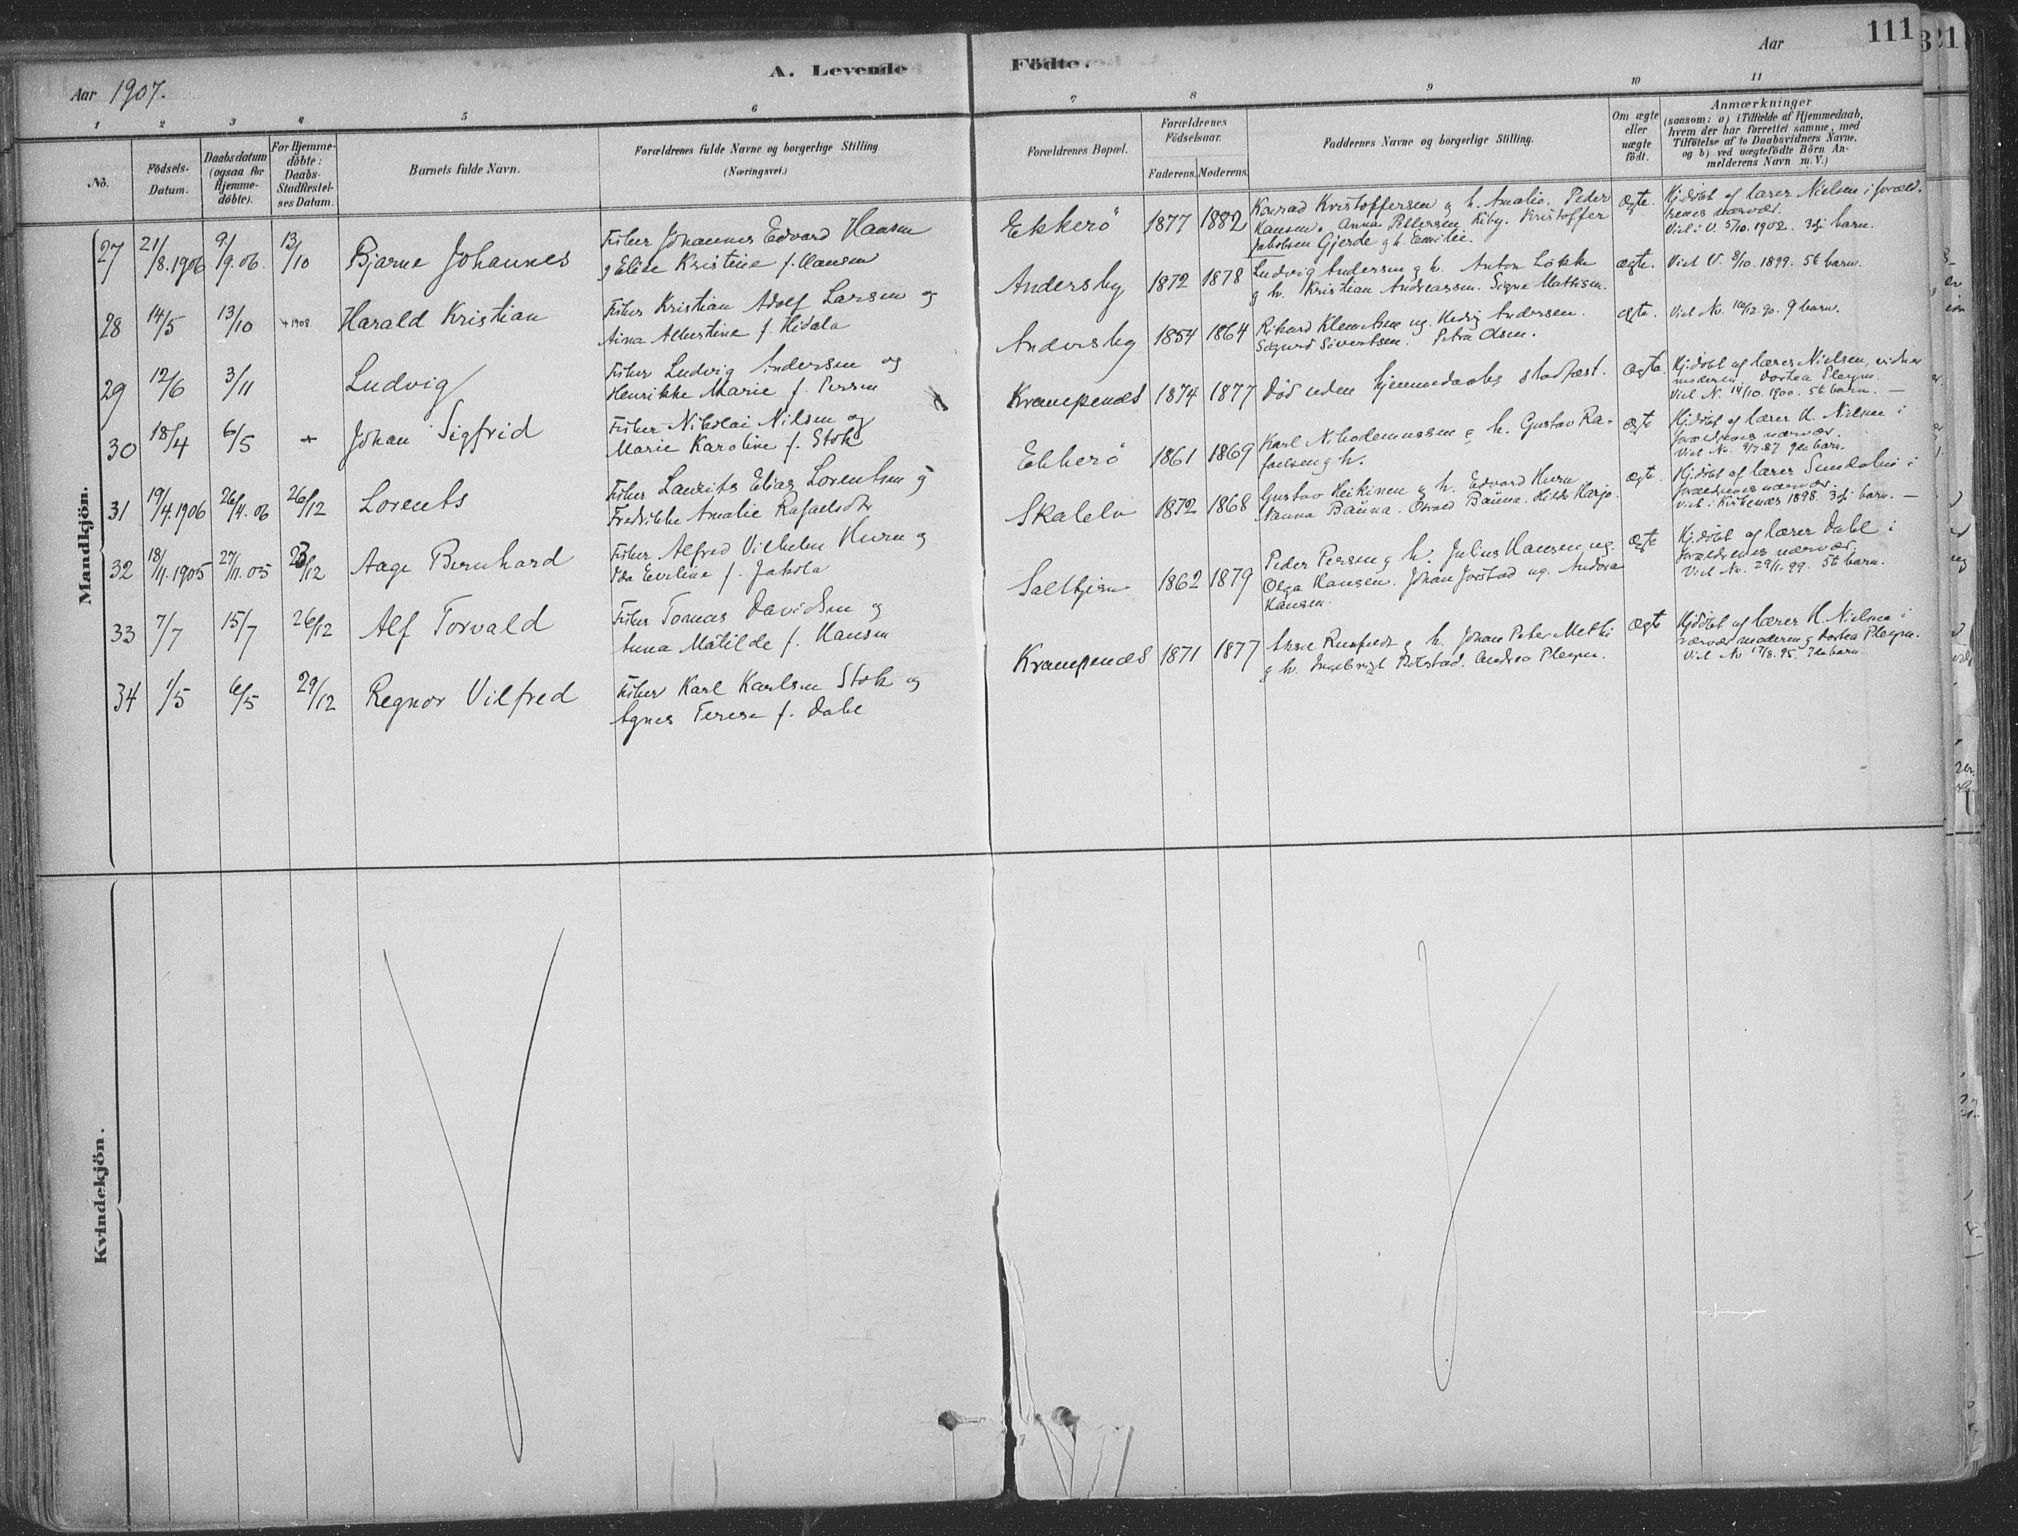 111
Aar 1907.
A. Levende Födte.
Aar
1 2 3 4 5 6 7 8 9 10 11
No.
Födsels-
Datum.
Daabsdatum
(ogsaa for
Hjemme-
döbte).
For Hjemme-
döbte:
Daabs-
Stadfæstel-
ses Datum.
Barnets fulde Navn.
Forældrenes fulde Navne og borgerlige Stilling
(Næringsvei.)
Forældrenes Bopæl.
Forældrenes
Födselsaar.
Faderens. Moderens.
Faddernes Navne og borgerlige Stilling.
Om ægte
eller
uægte
födt.
Anmærkninger
(saasom: a) i Tilfælde af Hjemmedaab,
hvem der har forrettet samme, med
Tilföielse af to Daabsvidners Navne,
og b) ved uægtefödte Börn An-
melderens Navn m. V.)
Mandkjön.
27 21/8.1906 9/9.06. 13/10 Bjarne Johannes
Fisker Johannes Edvard Hansen
og Elise Kristine f. Hansen
Ekkerö 1877 1882
Konrad Kristoffersen og h. Amalie. Peder
Hansen. Anna Pettersen Kiby. Kristoffer
Jakobsen Gjerde og h. Emilie.
ægte.
Hj.döbt af lærer Nielsen i foræld-
renes nærvær.
Viet i V. 5/10. 1902. 3dj barn.
28 14/5 13/10 Harald Kristian
Fisker Kristian Adolf Larsen og
Aina Albertine f. Hidala
Andersby 1872 1878
Ludvig Andersen og h. Anton Lökke
og h. Kristian Andreassen. Signe Mattisen.
ægte.
Viet V. 8/10. 1899. 5t barn.
29 12/6 3/11 Ludvig
Fisker Ludvig Andersen og
Henrikke Marie f. Persen
Andersby 1854 1864
Rikard Klemetsen ug. Hedvig Andersen.
Sigurd Sivertsen. Petra Olsen.
ægte.
Viet No. 10/12.90. 9 barn.
30 18/4 6/5 + Johan Sigfrid
Fisker Nikolai Nilsen og
Marie Karoline f. Stok
Krampenæs 1874 1877
Död uden hjemmedaabs stadfæst.
ægte.
Hj.döbt af lærer Nielsen, vidner
moderen, Dortea
Viet N. 14/10. 1900. 5t barn.
31 19/4.1906 26/4.06 26/12 Lorents
Fisker Laurits Elias Lorentsen og
Fredrikke Amalie Rafaelsdtr
Ekkerö 1861 1869
Karl Nikodemussen og h. Gustav Ra-
faelsen og h.
ægte
Hj.döbt af lærer H. Nielsen i
forældrenes nærvær.
Viet No. 9/7.87. 9de barn.
32 18/11.1905 27/11.05 23/12 Aage Bernhard
Fisker Alfred Vilhelm Hurn og
Ida Eveline f. Jakola
Skalelv 1872 1868
Gustav Heikinen og h. Edvard Hurn
Nanna Bauna. Osvald Bauna. Hilda Harjo.
ægte.
Hj.döbt af lærer Sundelin i
forældrenes nærvær.
Viet i Kirkenæs 1898. 3dj barn.
33 7/7 15/7 26/12 Alf Torvald
Fisker Tomas Davidsen og
Anna Matilde f. Hansen
Saltkjern 1862 1879
Peder Persen og h. Julius Hansen, ug.
Olga Hansen. Johan Jorstad ug. Andrea
Hansen.
ægte
Hj.döbt af lærer Dahl i
forældrenes nærvær.
Viet No. 29/1.99. 5t barn.
34 1/5 6/5 29/12 Regnor Vilfred
Fisker Karl Karlsen Stok og
Agnes Terese f. Dahl
Krampenæs 1871 1877
og h. Johan Peter Metti
og h. Ingebrigt Rolstad. Andrea
ægte
Hjdöbt af lærer H. Nielsen i
nærvær moderen og Dortea
Viet No 17/8.95. 7de barn.
Kvindekjön.